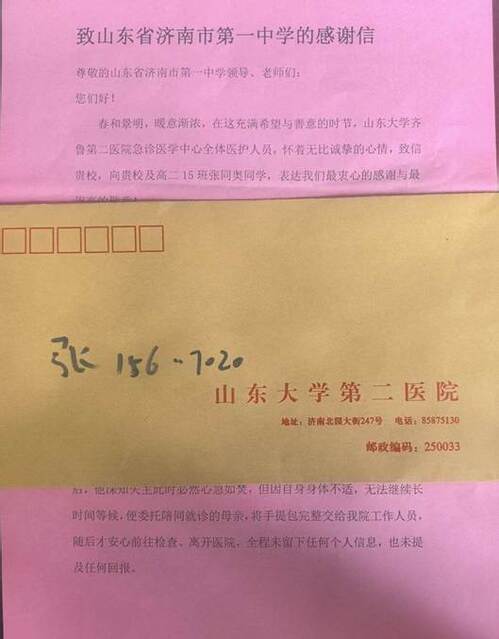 致山东省济南市第一中学的感谢信
尊敬的山东省济南市第一中学领导、老师们：
您们好！
春和景明，暖意渐浓，在这充满希望与善意的时节，山东大学齐
鲁第二医院急诊医学中心全体医护人员，怀着无比诚挚的心情，致信
贵校，向贵校及高二15班张同奥同学，表达我们最衷心的感谢与最
张 156--7020
山东大学第二医院
地址：济南北园大街247号 电话：85875130
邮政编码：250033
后，他深知失主此时必然心急如焚，但因自身身体不适，无法继续长
时间等候，便委托陪同就诊的母亲，将手提包完整交给我院工作人员，
随后才安心前往检查、离开医院，全程未留下任何个人信息，也未提
及任何回报。